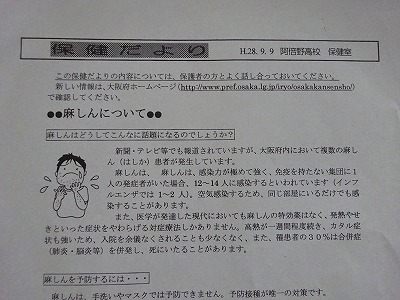 保健だより
H.28. 9. 9 阿倍野高校 保健室
この保健だよりの内容については、保護者の方とよく話し合っておいてください。
新しい情報は、大阪府ホームページ(http://www.pref.osaka.lg.jp/iryo/osakakansensho/)
で確認してください。
●●麻しんについて●●
麻しんはどうしてこんなに話題になるのでしょうか?
新聞・テレビ等でも報道されていますが、大阪府内において複数の麻し
ん(はしか)患者が発生しています。
麻しんは、 麻しんは、感染力が極めて強く、免疫を持たない集団に1
人の発症者がいた場合、12~14人に感染するといわれています(インフ
ルエンザでは1~2人)。空気感染するため、同じ部屋にいるだけでも感
染することがあります。
また、医学が発達した現代においても麻しんの特効薬はなく、発熱やせ
きといった症状をやわらげる対症療法しかありません。高熱が一週間程度続き、カタル症
状も強いため、入院を余儀なくされることも少なくなく、また、罹患者の30%は合併症
(肺炎・脳炎等)を併発し、死にいたることがあります。
麻しんを予防するには・・・
麻しんは、手洗いやマスクでは予防できません。予防接種が唯一の対策です。